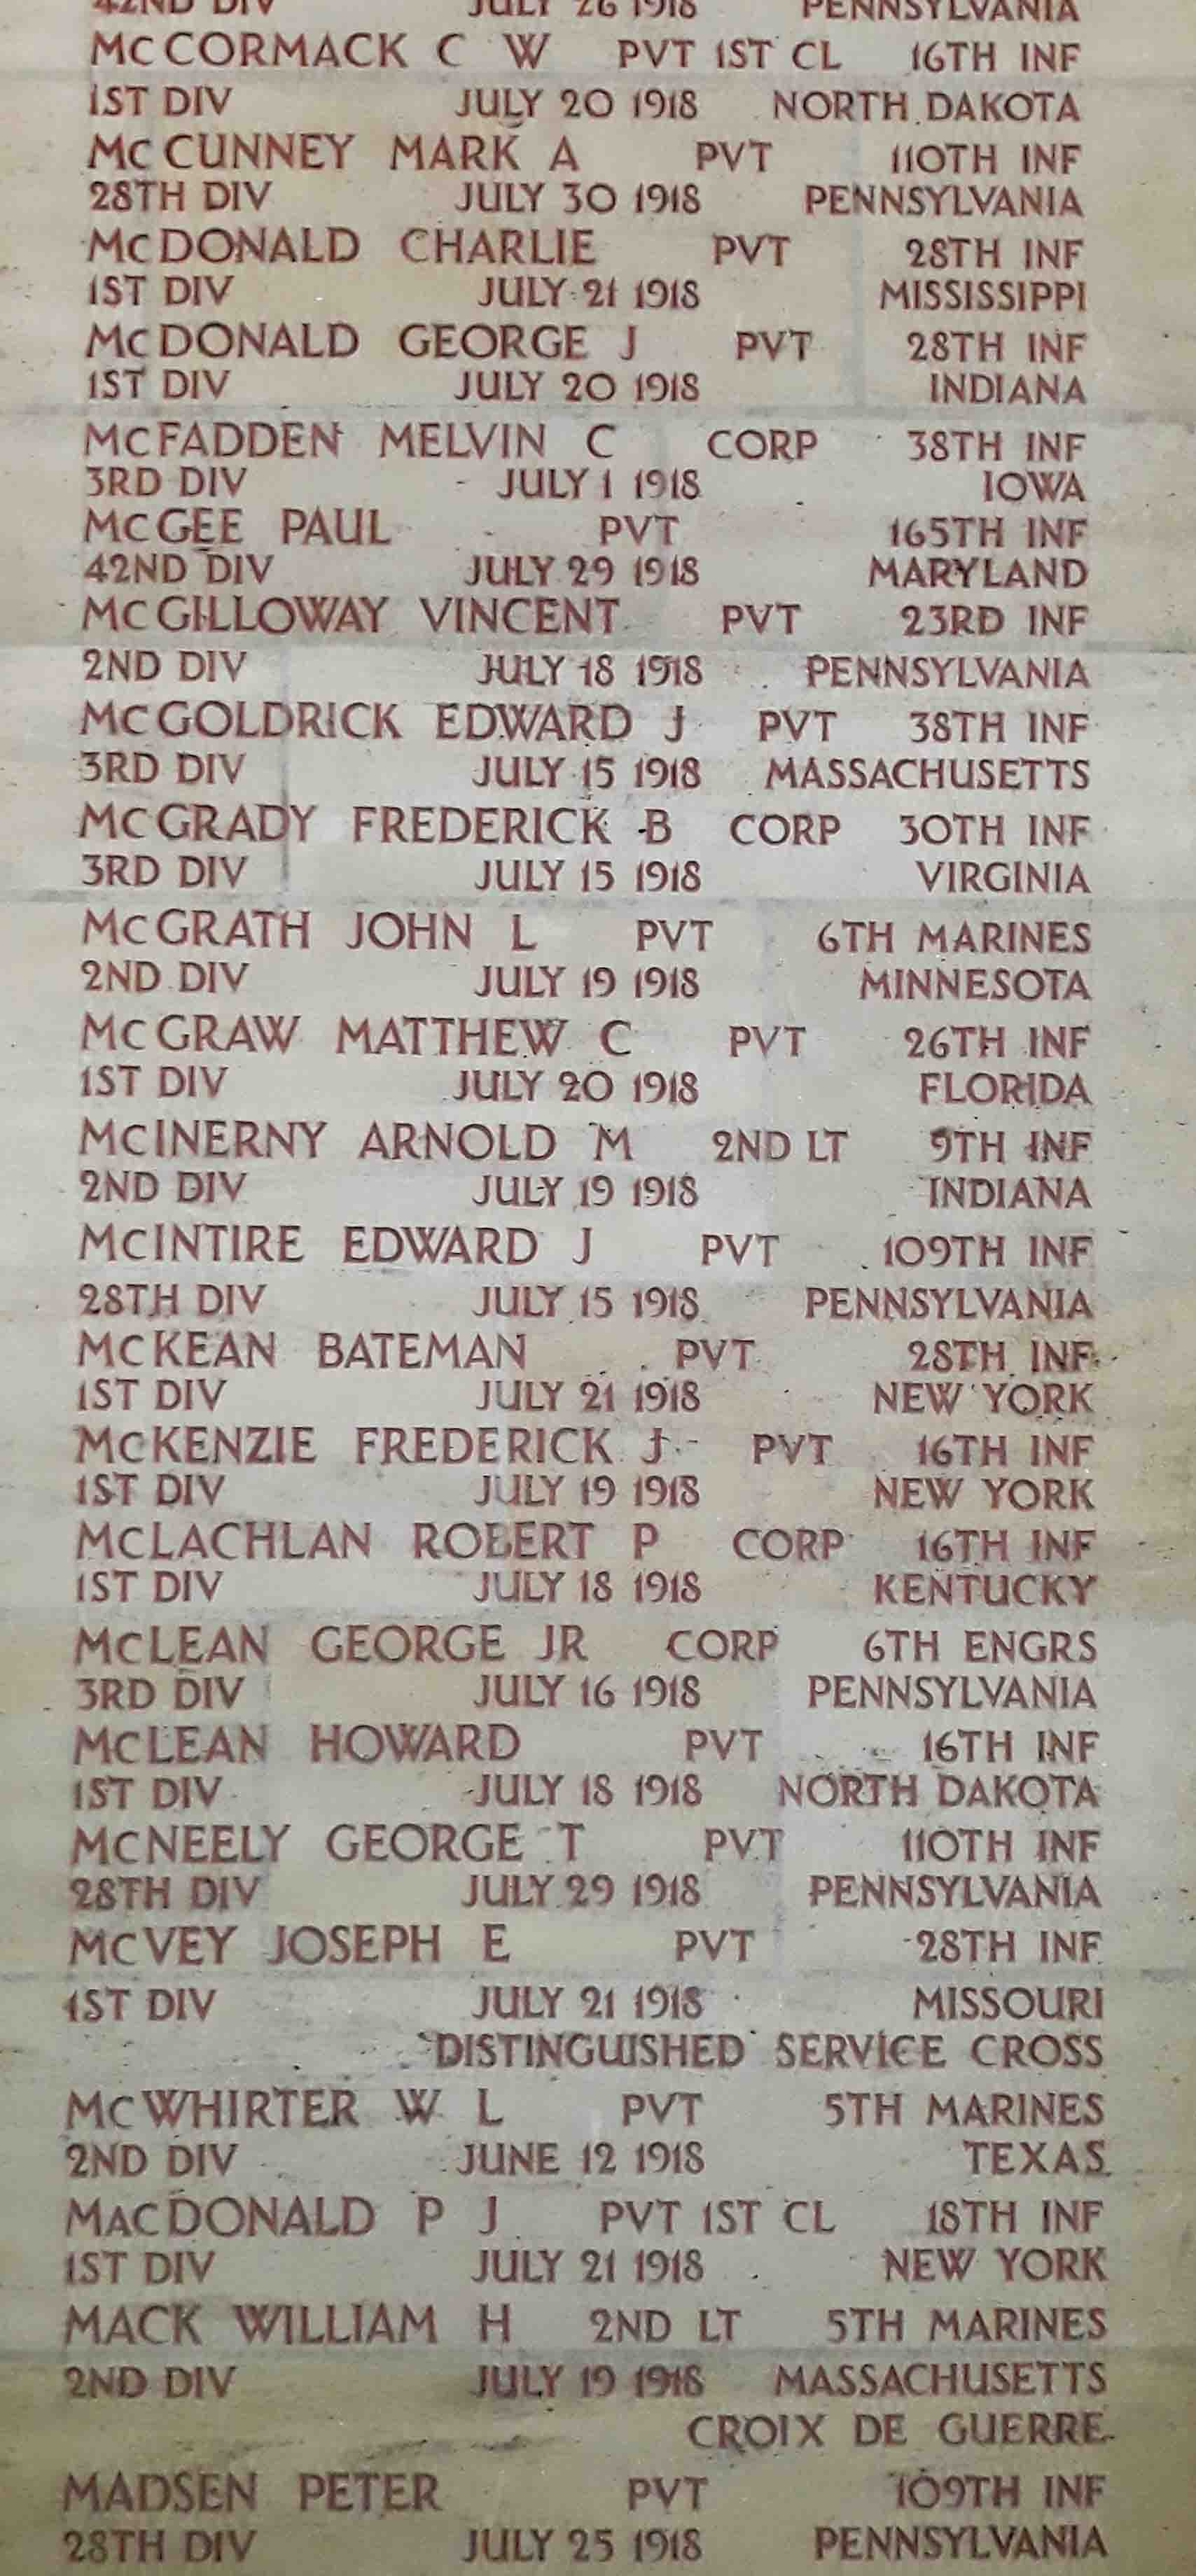 42ND DIV JULY 26 1918 PENNSYLVANIA
McCORMACK C W PVT 1ST CL 16TH INF
1ST DIV JULY 20 1918 NORTH DAKOTA
McCUNNEY MARK A PVT 110TH INF
28TH DIV JULY 30 1918 PENNSYLVANIA
McDONALD CHARLIE PVT 28TH INF
1ST DIV JULY 21 1918 MISSISSIPPI
McDONALD GEORGE J PVT 28TH INF
1ST DIV JULY 20 1918 INDIANA
McFADDEN MELVIN C CORP 38TH INF
3RD DIV JULY 1 1918 IOWA
McGEE PAUL PVT 165TH INF
42ND DIV JULY 29 1918 MARYLAND
McGILLOWAY VINCENT PVT 23RD INF
2ND DIV JULY 18 1918 PENNSYLVANIA
McGOLDRICK EDWARD J PVT 38TH INF
3RD DIV JULY 15 1918 MASSACHUSETTS
McGRADY FREDERICK B CORP 30TH INF
3RD DIV JULY 15 1918 VIRGINIA
McGRATH JOHN L PVT 6TH MARINES
2ND DIV JULY 19 1918 MINNESOTA
McGRAW MATTHEW C PVT 26TH INF
1ST DIV JULY 20 1918 FLORIDA
McINERNY ARNOLD M 2ND LT 9TH INF
2ND DIV JULY 19 1918 INDIANA
McINTIRE EDWARD J PVT 109TH INF
28TH DIV JULY 15 1918 PENNSYLVANIA
McKEAN BATEMAN PVT 28TH INF
1ST DIV JULY 21 1918 NEW YORK
McKENZIE FREDERICK J PVT 16TH INF
1ST DIV JULY 19 1918 NEW YORK
McLACHLAN ROBERT P CORP 16TH INF
1ST DIV JULY 18 1918 KENTUCKY
McLEAN GEORGE JR CORP 6TH ENGRS
3RD DIV JULY 16 1918 PENNSYLVANIA
McLEAN HOWARD PVT 16TH INF
1ST DIV JULY 18 1918 NORTH DAKOTA
McNEELY GEORGE T PVT 110TH INF
28TH DIV JULY 29 1918 PENNSYLVANIA
McVEY JOSEPH E PVT 28TH INF
1ST DIV JULY 21 1918 MISSOURI
DISTINGUISHED SERVICE CROSS
McWHIRTER W L PVT 5TH MARINES
2ND DIV JUNE 12 1918 TEXAS
MacDONALD P J PVT 1ST CL 18TH INF
1ST DIV JULY 21 1918 NEW YORK
MACK WILLIAM H 2ND LT 5TH MARINES
2ND DIV JULY 19 1918 MASSACHUSETTS
CROIX DE GUERRE
MADSEN PETER PVT 109TH INF
28TH DIV JULY 25 1918 PENNSYLVANIA